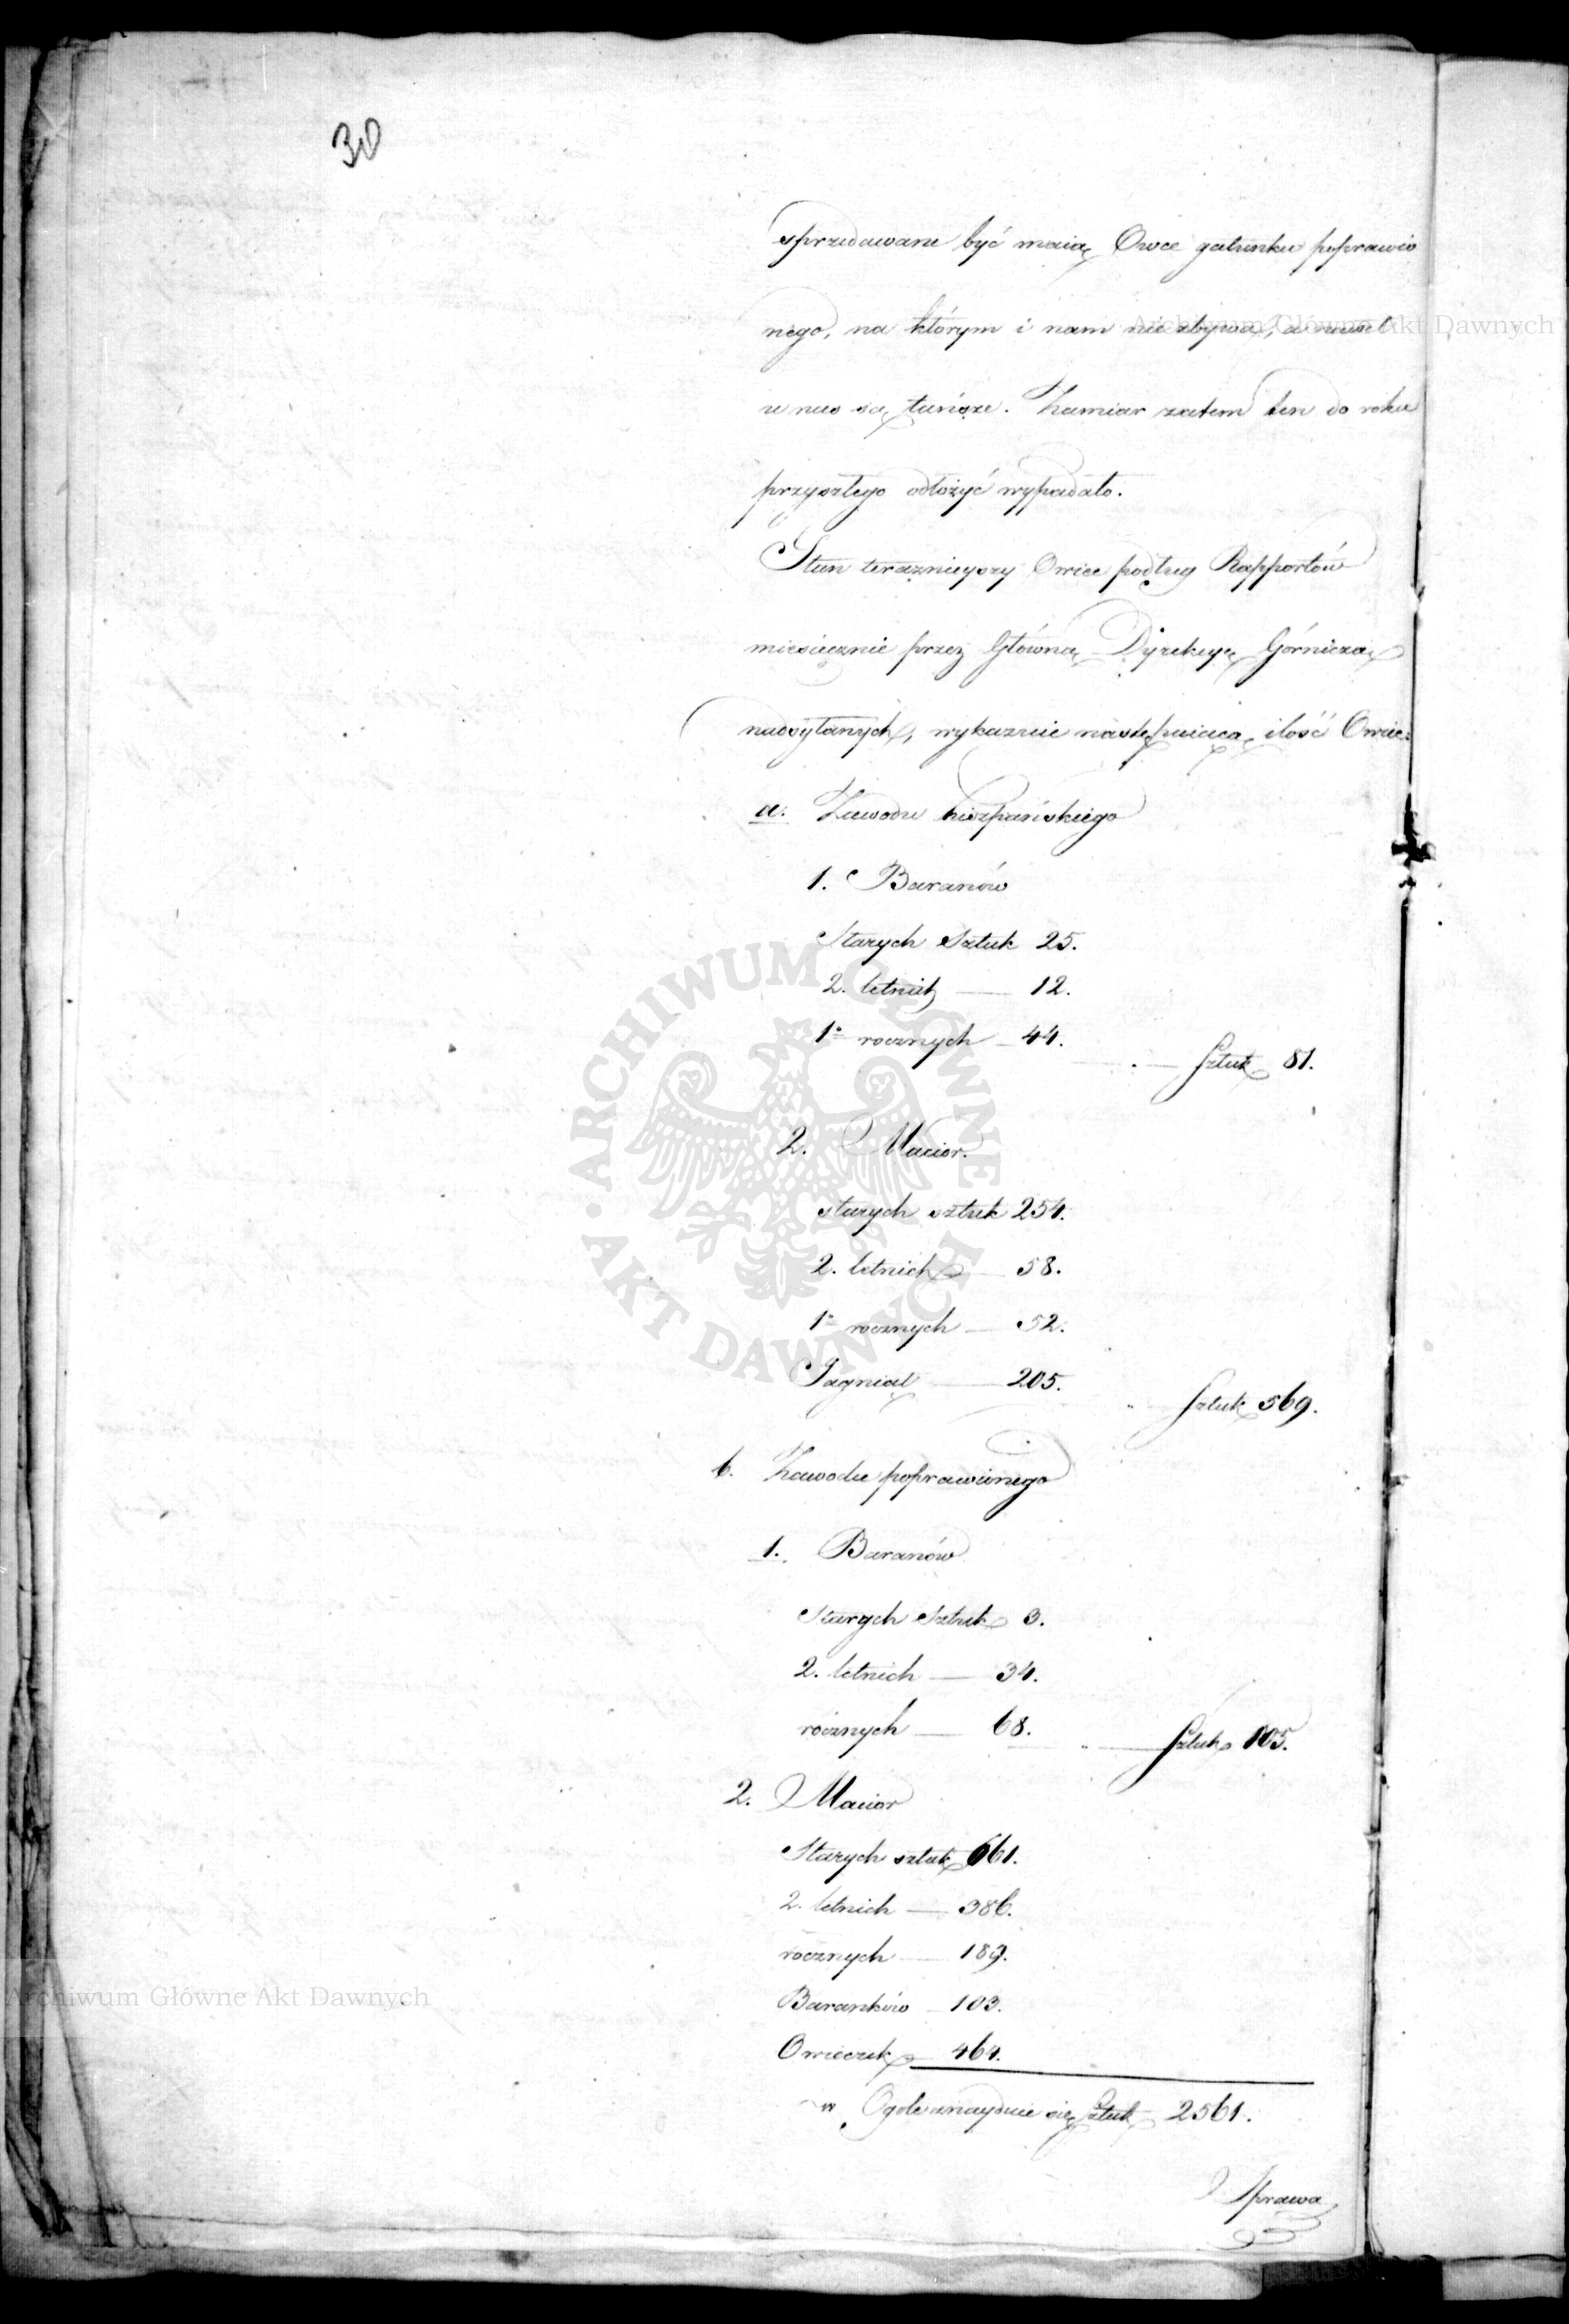 30
sprzedawane być maią Owce gatunku poprawio
nego, na którym i nam nie zbywa, a nawet
u nas są tańsze. Zamiar zatem ten do roku
przyszłego odłożyć wypadało.
Stan teraznieyszy Owiec podług Rapportów
miesiecznie przez Główną Dyrekcyę Górniczą
nadsyłanych, wykazuie następuiącą ilość Owiec:
a. Zawodu hiszpańskiego
1. Baranów
Starych Sztuk 25.
2. letnich — 12.
1o rocznych — 44.
— Sztuk 81.
2. Macior.
starych sztuk 254.
2. letnich — 58.
1o rocznych — 52.
Jagniąt — 205.
" Sztuk 569.
b. Zawodu poprawionego
1. Baranów
Starych Sztuk 3.
2. letnich — 34.
rocznych — 68.
" — Sztuk 105.
2. Macior
Starych sztuk 661.
2. letnich — 386.
rocznych — 189.
Baranków — 103.
Owieczek — 464.
w Ogole znayduie się Sztuk 2561.
Sprawa
Archiwum Główne Akt Dawnych
Archiwum Główne Akt Dawnych
ARCHIWUM GŁÓWNE • AKT DAWNYCH